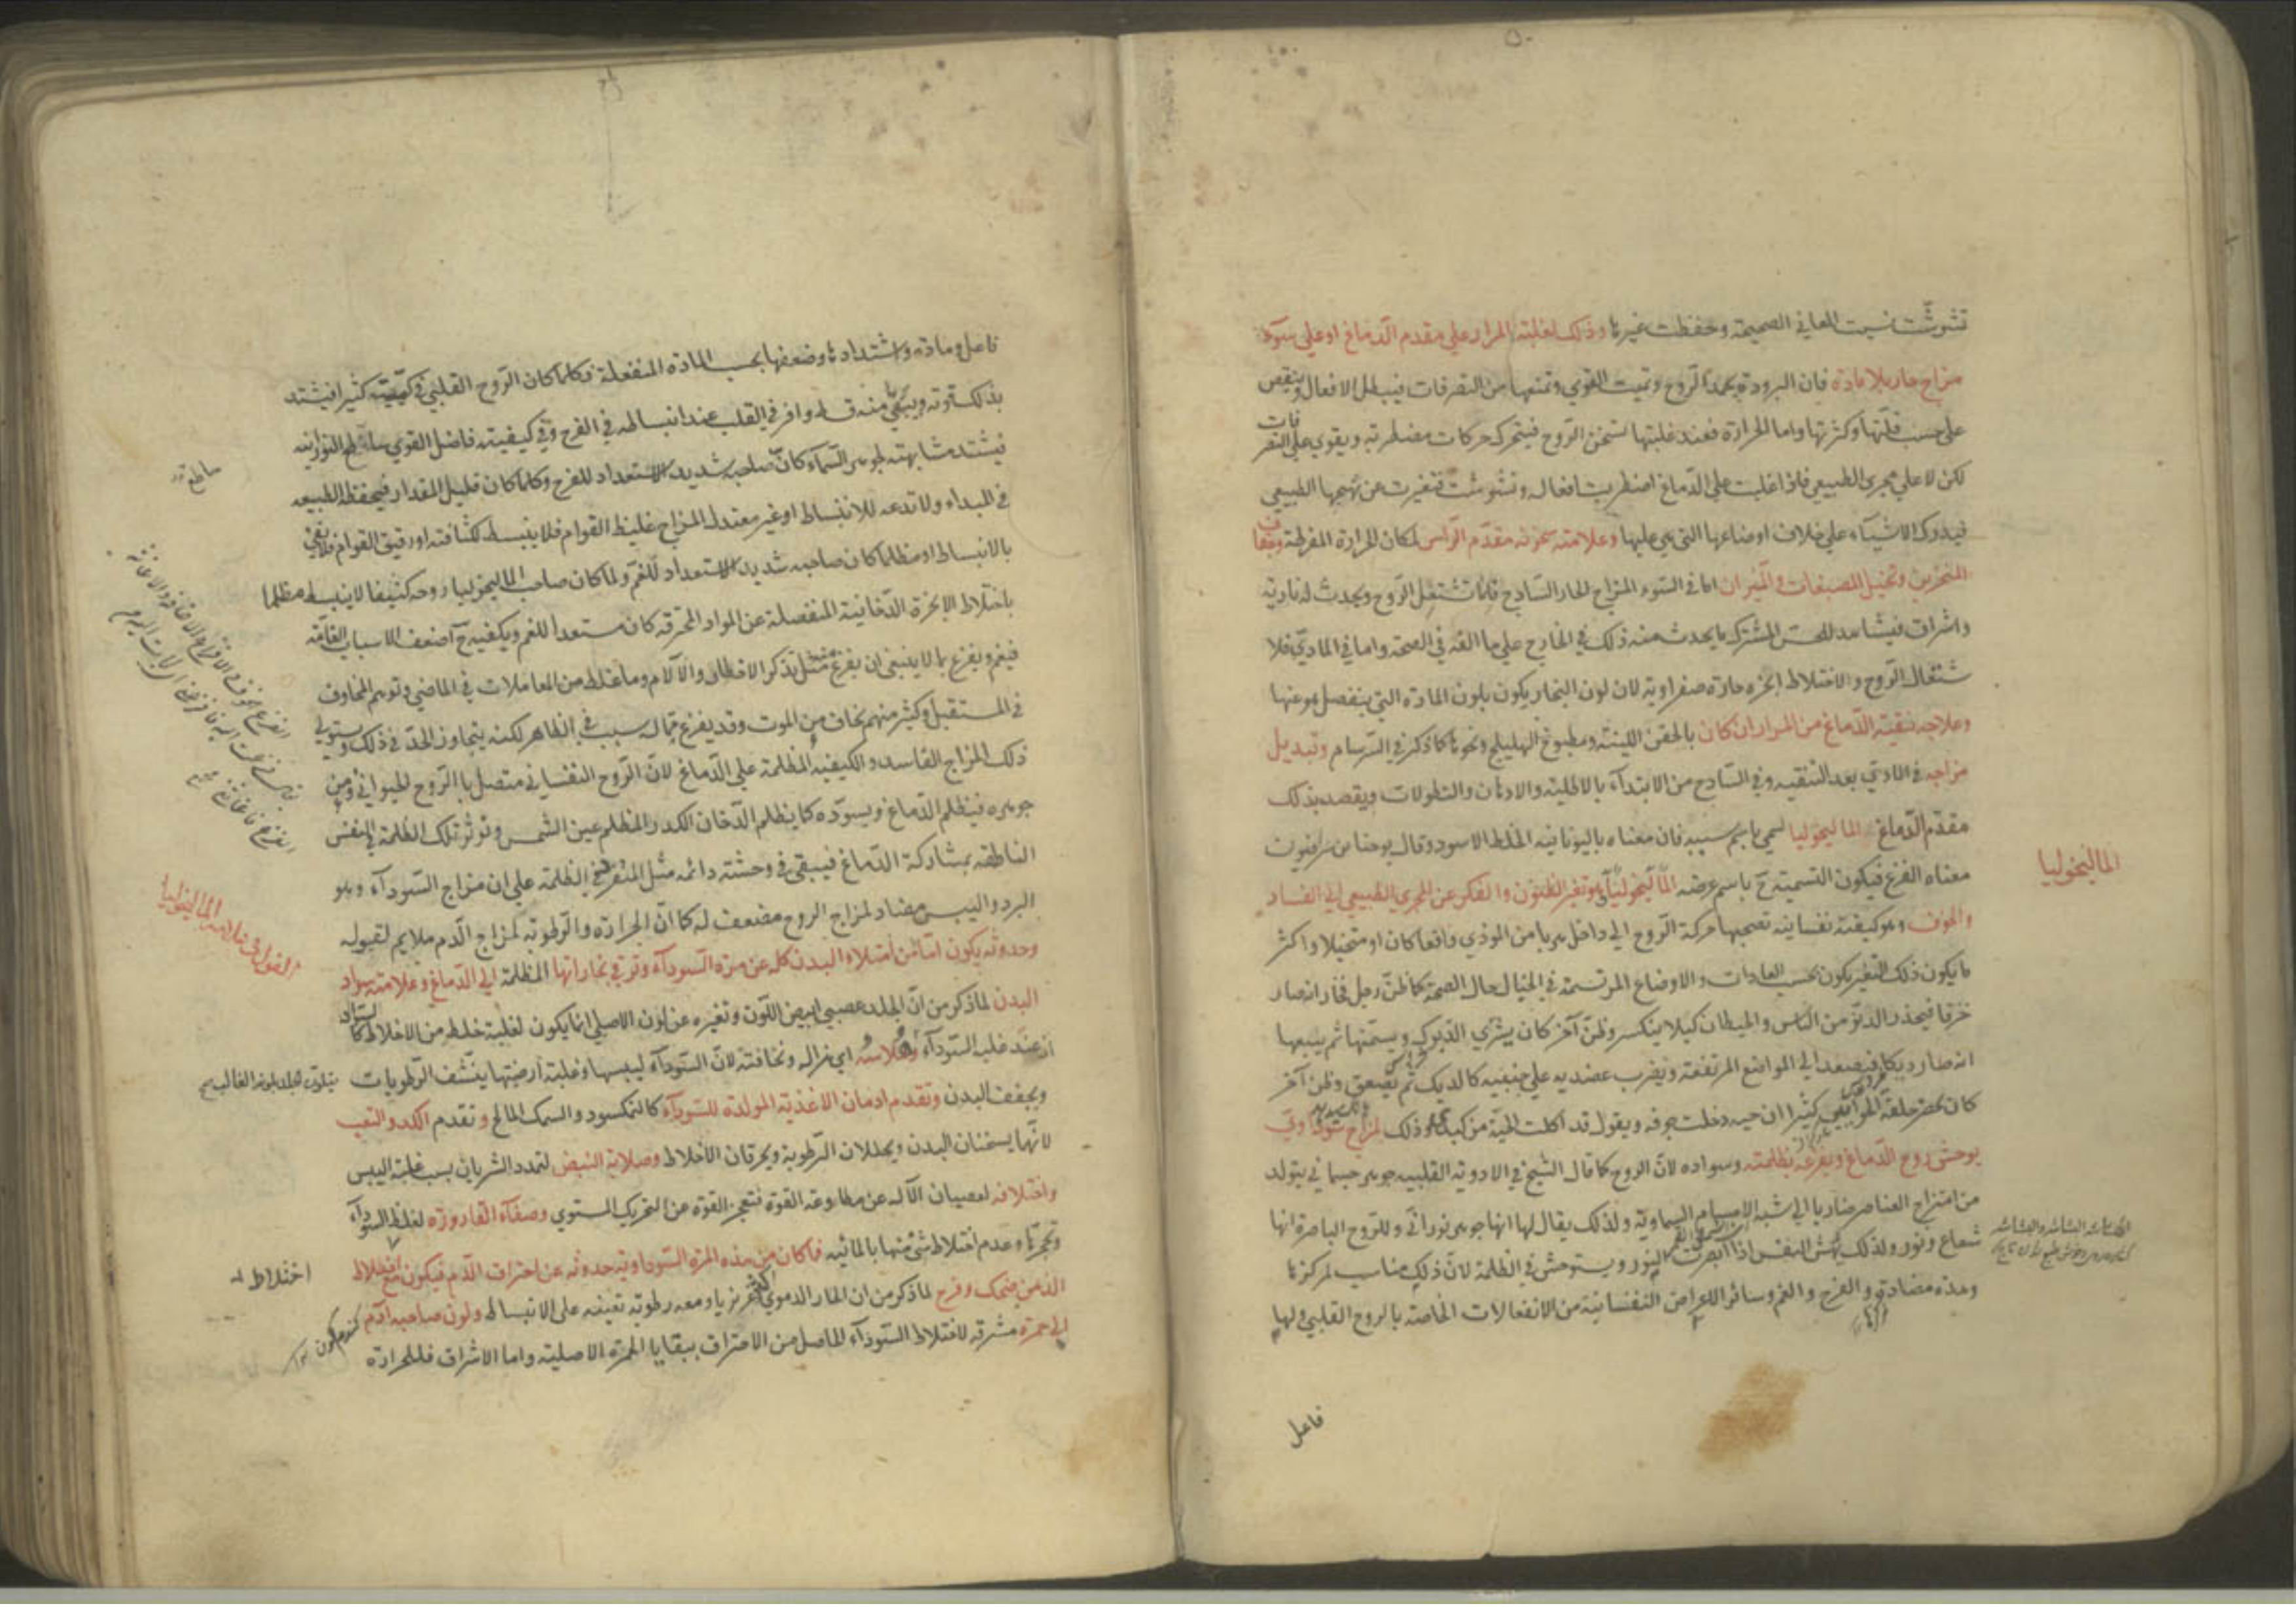 ٥٠
تشوشت نسيت المعاني الصحيحة وحفظت غيرها وذلك لغلبة المرار على مقدم الدماغ او على سوء
مزاج حار بلا مادة فان البرودة تجمد الروح وتميت القوي وتمنعها من التصرفات فيبطل الافعال وينقص
على حسب قلتها وكثرتها واما الحرارة فعند غلبتها تسخن الروح فيتحرك حركات مضطربة ويقوي على التصرفات
لكن لا على مجرى الطبيعي فاذا غلبت على الدماغ اضطربت افعاله وتشوشت فتغيرت عن نهجها الطبيعي
فيدرك الاشياء على خلاف اوضاعها التى هي عليها وعلامته سخونة مقدم الراس لمكان الحرارة المفرطة وجفاف
المنخرين وتخيل المصبغات والنيران اما في السوء المزاج الحار الساذج فلما تشتعل الروح ويحدث له نارية
واشراق فيشاهد للحس المشترك ما يحدث منه ذلك في الخارج على ما الفه في الصحة واما في المادي فلا
شتعال الروح والاختلاط ابخرة حارة صفراوية لان لون البخار يكون بلون المادة التي ينفصل هو عنها
وعلاجه تنقية الدماغ من المرار ان كان بالحقن اللينة ومطبوخ الهليلج ونحوها كما ذكر في السرسام وتبديل
مزاجه في المادي بعد التنقية وفي الساذج من الابتداء بالاطلية والادهان والنطولات ويقصد بذلك
مقدم الدماغ الماليخوليا سمي باسم سببه فان معناه باليونانية الخلط الاسود وقال يوحنا بن سرافيون
معناه الفزع فيكون التسمية ح باسم عرضه الماليخوليا هو تغير الظنون والفكر عن المجرى الطبيعي الى الفساد
والخوف وهو كيفية نفسانية تصحبها حركة الروح الى داخل هربا من الموذي واقعا كان او متخيلا واكثر
ما يكون ذلك التغير يكون بحسب العادات والاوضاع المرتسمة في الخيال حال الصحة كما ظن رجل فخار انه صار
خزفا فيحذر الدنو من الناس والحيطان كيلا ينكسر وظن آخر كان يشتري الديوك ويسمنها ثم يبيعها
انه صار ديكا فيصعد الى المواضع المرتفعة ويضرب عضديه على جنبيه كالديك ثم يصعق وظن آخر
كان يحضر حلقة كثيرا ان حية دخلت جوفه ويقول قد اكلت الحية من كبدي وذلك لمزاج سوداوي
يوحش روح الدماغ ويفزعه بظلمته وسواده لان الروح كما قال الشيخ في الادوية القلبية جوهر جسماني يتولد
من امتزاج العناصر ضاربا الى شبه الاجسام السماوية ولذلك يقال لها انها جوهر نوراني وللروح الباصرة انها
شعاع ونور ولذلك يهش النفس اذا ابصرت النور ويستوحش في الظلمة لان ذلك مناسب لمركزها
وهذه مضادة والفرح والغم وسائر الاعراض النفسانية من الانفعالات الخاصة بالروح القلبي ولها
فاعل
الماليخوليا
فاعل ومادة واشتدادها وضعفها بحسب المادة المنفعلة فكلما كان الروح القلبي في كميته كثيرا فيشتد
بذلك قوته ويبقي منه قسط وافر في القلب عند انبساطه في الفرح وفي كيفيته فاضل القوي ساطع النورانية
فيشتد مشابهته لجوهر السماء كان صاحبه شديد الاستعداد للفرح وكلما كان قليل المقدار فيحفظه الطبيعة
في المبداء ولا تدعه للانبساط او غير معتدل المزاج غليظ القوام فلا ينبسط لكثافته او رقيق القوام فلا يفي
بالانبساط او مظلما كان صاحبه شديد الاستعداد للغم ولما كان صاحب الماليخوليا روحه كثيفا لا ينبسط مظلما
باختلاط الابخرة الدخانية المنفصلة عن المواد المحترقة كان مستعدا للغم ويكفيه ح اضعف الاسباب الغامة
فيغم ويفزع بما لا ينبغي ان يفزع مثل تذكر الاقطان والآلام وما غلط من المعاملات في الماضي وتوهم المخاوف
في المستقبل وكثير منهم يخاف من الموت وقد يفزع مما له سبب في الظاهر لكنه يتجاوز الحد في ذلك ويستولي
ذلك المزاج الفاسد والكيفية المظلمة على الدماغ لان الروح النفساني متصل بالروح الحيواني ومن
جوهره فيظلم الدماغ ويسوده كما يظلم الدخان الكدر المظلم عين الشمس وتؤثر تلك الظلمة في النفس
الناطقة بمشاركة الدماغ فيبقى في وحشة دائمة مثل المتفرد في الظلمة على ان مزاج السوداء وهو
البرد واليبس مضاد لمزاج الروح مضعف له كما ان الحرارة والرطوبة لمزاج الدم ملايم لقبوله
وحدوثه يكون اما من امتلاء البدن كله عن مرة السوداء وترقي بخاراتها المظلمة الى الدماغ وعلامته سواد
البدن لما ذكر من ان الجلد عصبي ابيض اللون وتغيره عن لونه الاصلي انما يكون لغلبة خلط من الاخلاط كما
عند غلبة السوداء وهلاسه اي هزاله ونحافته لان السوداء ليبسها وغلبة ارضيتها ينشف الرطوبات
ويجفف البدن وتقدم ادمان الاغذية المولدة للسوداء كالنمكسود والسمك المالح وتقدم الكد والتعب
لانهما يسخنان البدن ويحللان الرطوبة ويحرقان الاخلاط وصلابة النبض لتمدد الشريان بسبب غلبة اليبس
واختلافه لعصيان الآلة عن مطاوعة القوة فتعجز القوة عن التحريك المستوي وصفاء القارورة لغلظ السوداء
وتحجرها وعدم اختلاط شئ منها بالمائية فما كان من هذه المرة السوداوية حدوثه عن احتراق الدم فيكون مع اختلاط
الذهن ضحك وفرح لما ذكر من ان الحار الدموي غريزيا ومعه رطوبة تعينه على الانبساط ولون صاحبه آدم
الى حمرة مشرقة لاختلاط السوداء الحاصل من الاحتراق ببقايا الحمرة الاصلية واما الاشراق فللحرارة
ساطع
القول في علامة الماليخوليا
اختلاط
گندم گون